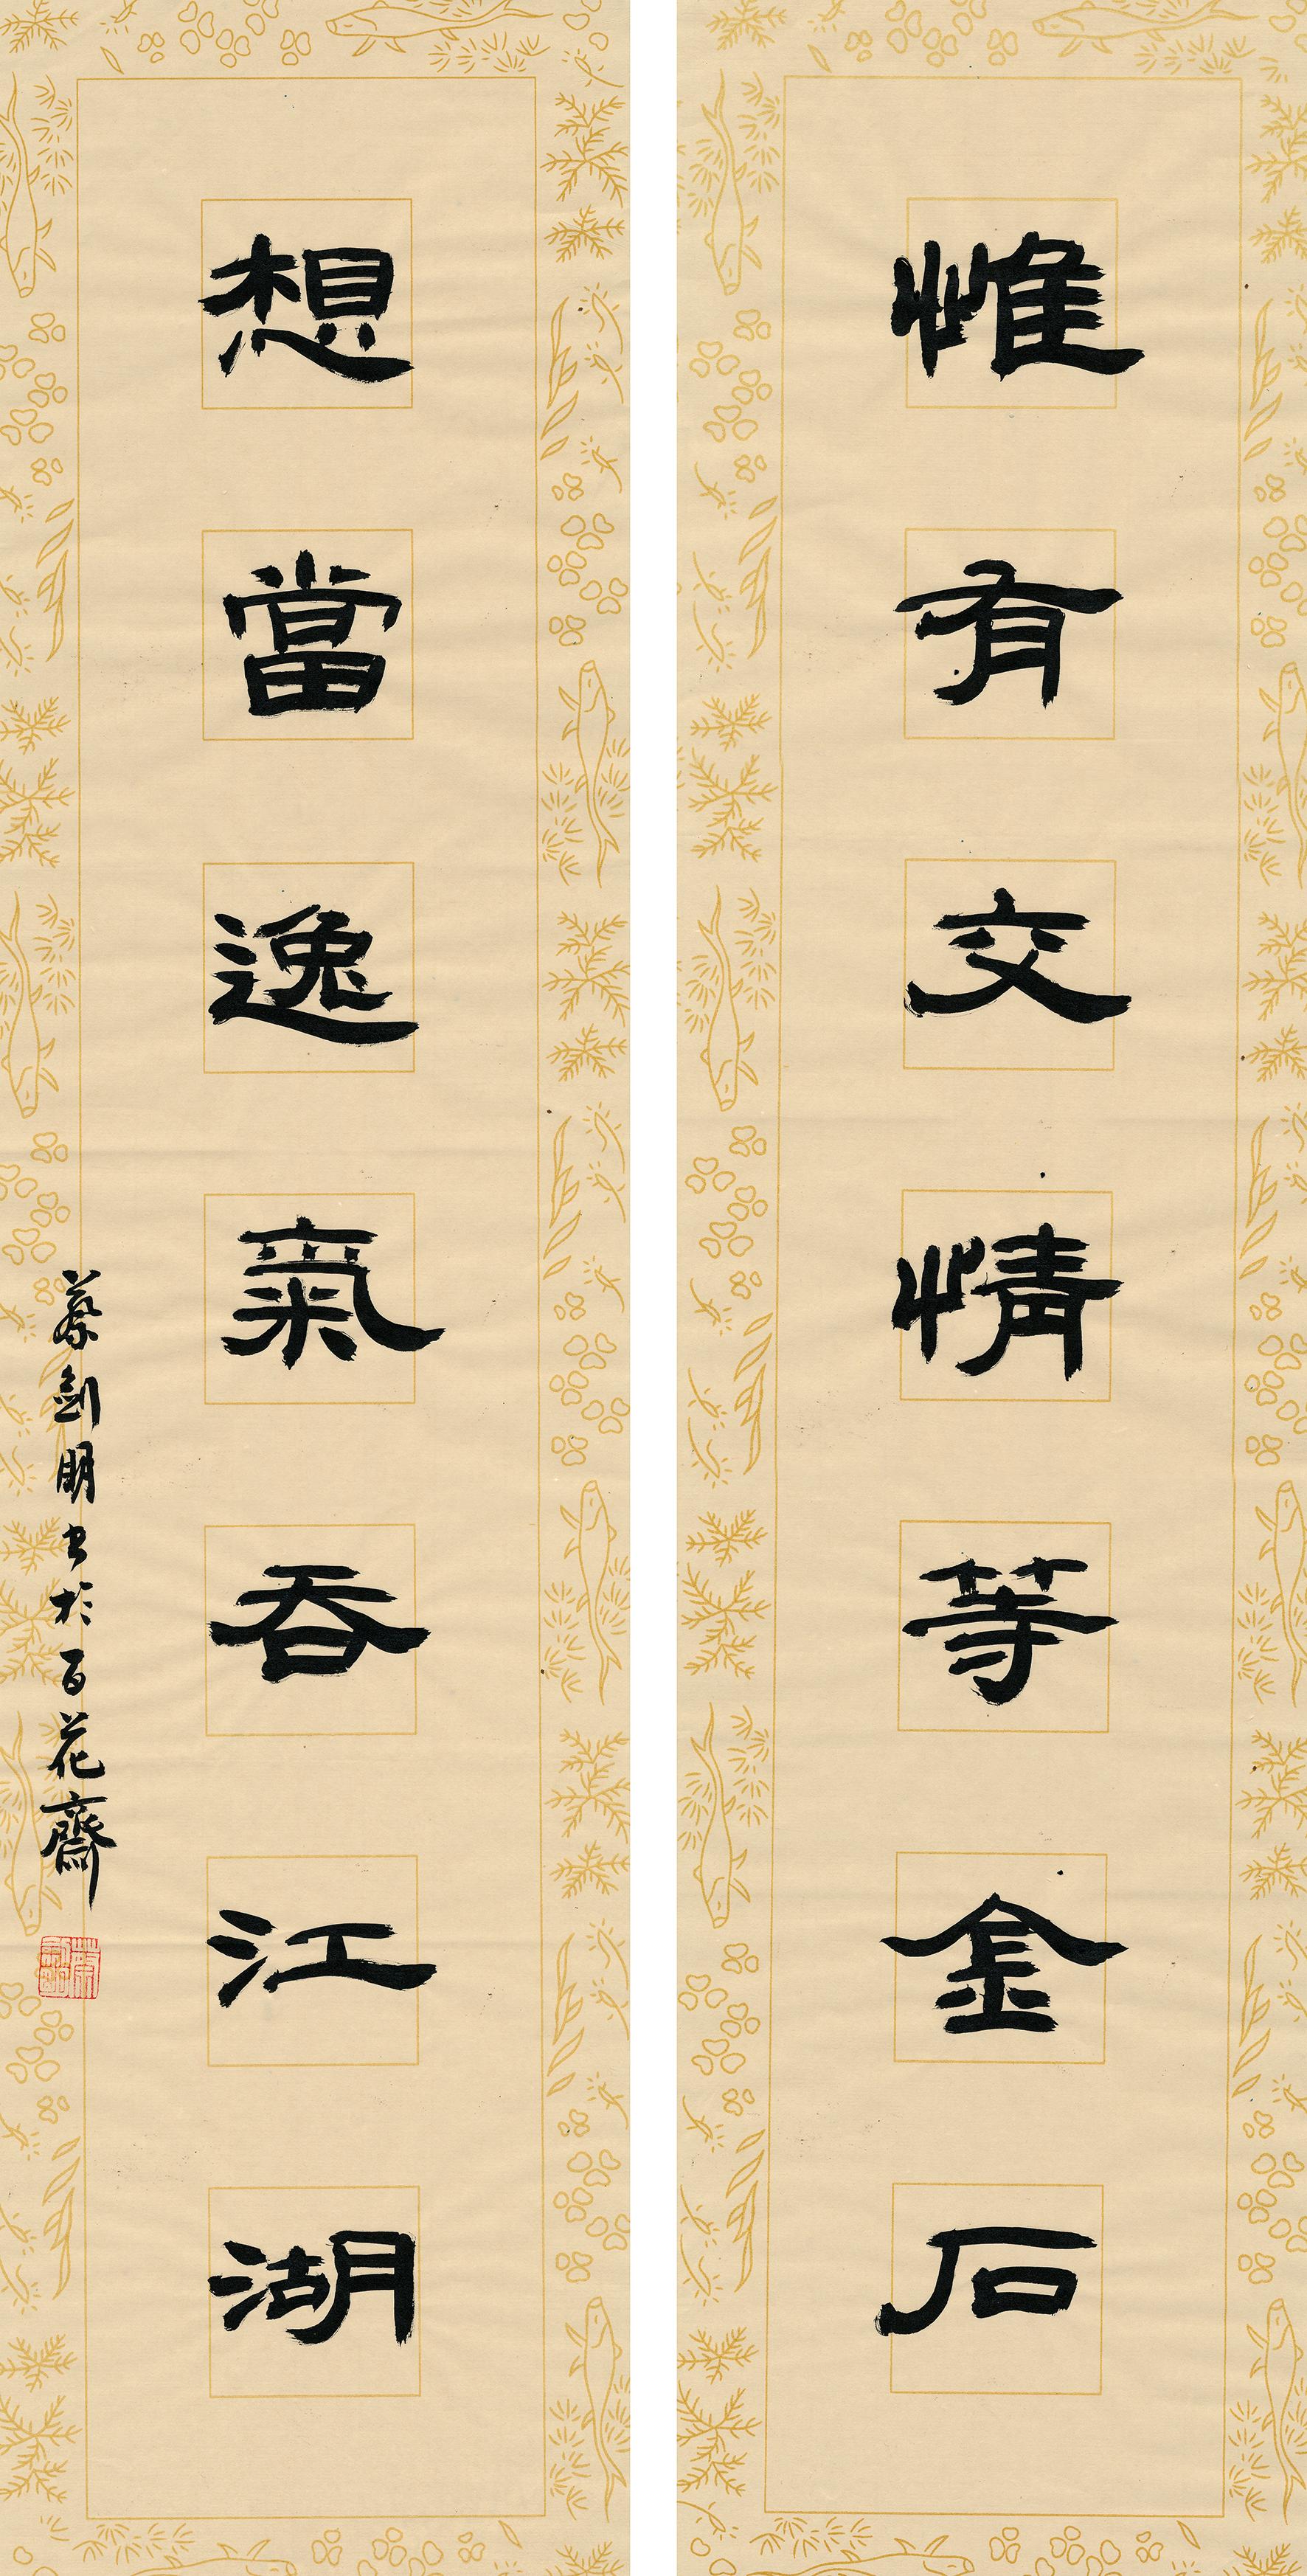 惟有交情等金石
想當逸氣吞江湖
蔡劍明书於百花齋